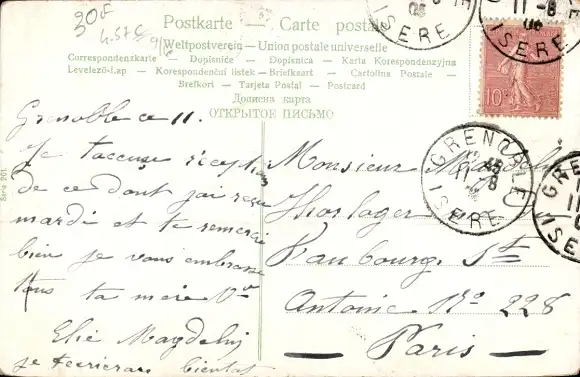 30F
4.575
Postkarte — Carte postale
Weltpostverein — Union postale universelle
Correspondenzkarte — Dopisnice — Dopisnica — Karta Korespondencyjna
Levelező-Lap — Korespondenční listek — Briefkaart — Cartolina Postale —
Brefkort — Tarjeta Postal — Postcard
Дописна карта
ОТКРЫТОЕ ПИСЬМО
Serie 201.
Grenoble ce 11.
Je t'accuse réception
de ce dont j'ai reçu
mardi et te remercie
bien je vous embrasse
tous ta mère
Elie
je t'écrirai bientot
Monsieur
Horloger
Faubourg St
Antoine No 228
Paris
10
ISERE
11-8
ISERE
GRENOBLE
11 8
ISERE
GRE
11
ISERE